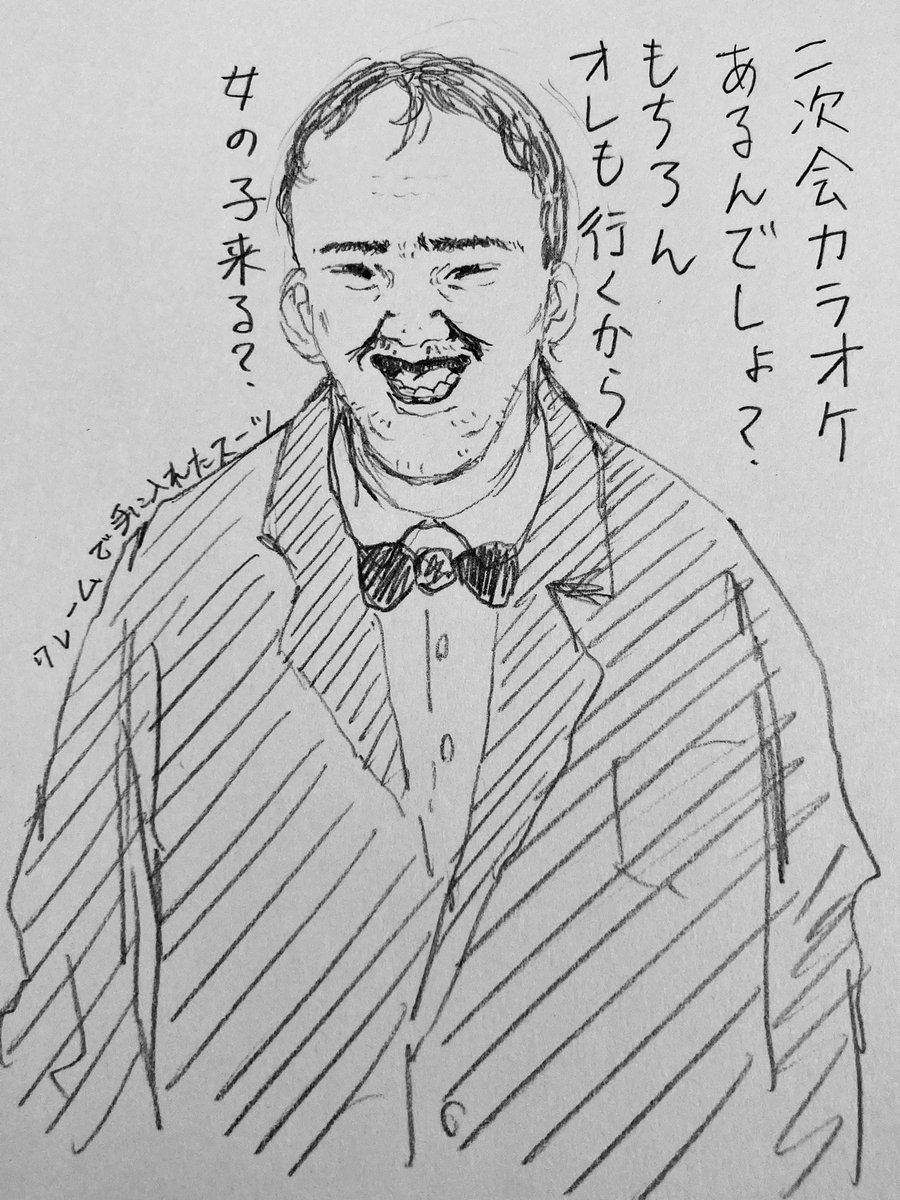 二次会カラオケ
あるんでしょ?
もちろん
オレも行くから
女の子来る?
クレームで手に入れたスーツ